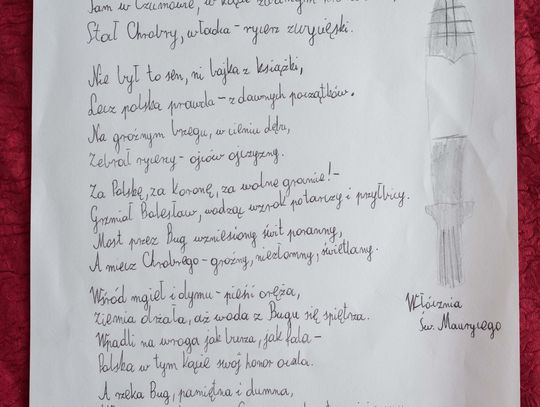 Tam w Czumowie, w kącie
Stał Chrobry, władca - rycerz zwycięski.
Nie był to sen, ni bajka z książki,
Lecz polska prawda - z dawnych początków.
Na groźnym brzegu, w cieniu dębu,
Zebrał rycerzy - ojców ojczyzny.
Za Polskę, za Koronę, za wolne granice! -
Grzmiał Bolesław, wodząc wzrok po tarczy i przyłbicy.
Most przez Bug wzniesiony świt poranny,
A miecz Chrobrego - groźny, niezłomny, świetlany.
Wśród mgieł i dymu - pieśni oręża,
Ziemia drżała, aż woda z Bugu się spiętrza.
Wpadli na wroga jak burza, jak fala -
Polska w tym kącie swój honor ocala.
A rzeka Bug, pamiętna i dumna,
Włócznia
Św. Maurycego